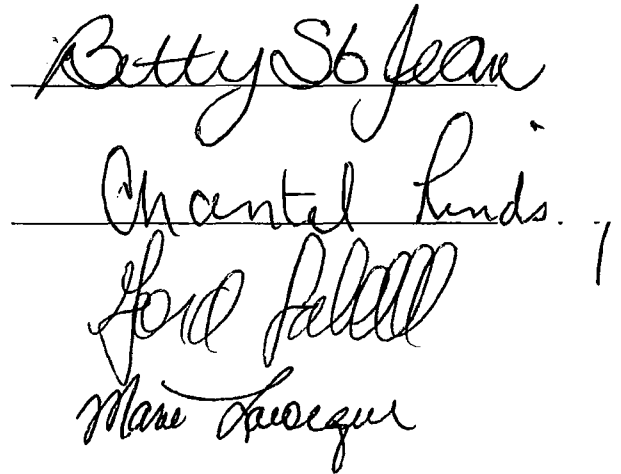 Betty St Jean
Chantel Hinds.
Marie Larocque